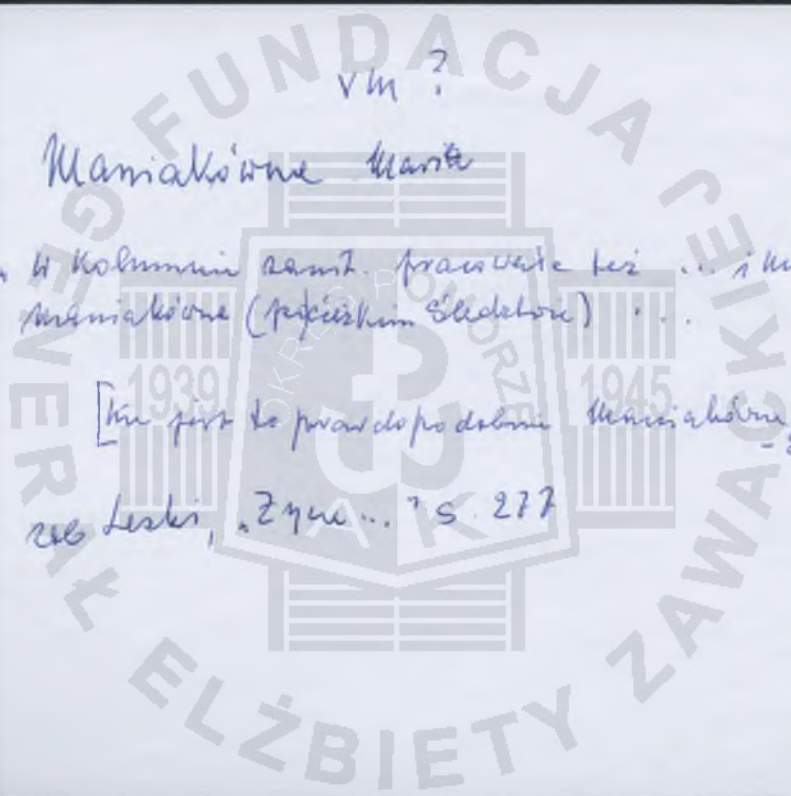 VM ?
Maniakówna Maria
W Kolumnie zamk. pracowała też ... i
Maniakówna (po ciężkim śledztwie) ...
[Nie jest to prawdopodobnie Maniakówna
zob Leski, „Życie..." s. 277
FUNDACJA GENERAŁ ELŻBIETY ZAWACKIEJ
1939 1945
OKRĘG POMORZE
AK